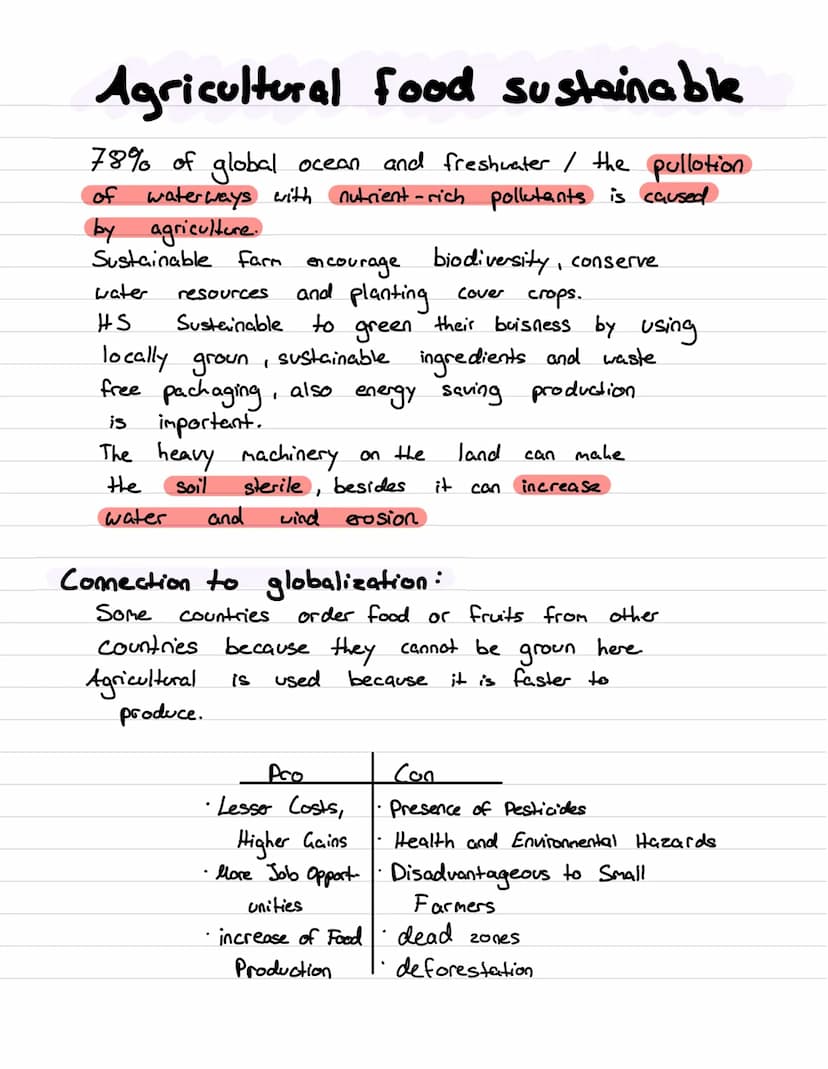 Agricultural food sustainable
78% of global ocean and freshwater / the pullotion
of waterways with nutrient-rich pollutants is caused
by agriculture.
Sustainable Farm encourage biodiversity, conserve
water resources and planting cover crops.
Sustainable to green their buisness by using
locally grown, sustainable ingredients and waste
free packaging, also energy saving production
is important.
The heavy machinery on the land can make
the soil sterile, besides it can increase
water and wind erosion
Connection to globalization:
Some countries order food or fruits from other
countries because they cannot be grown here
Agricultural is used because it is faster to
produce.
Pro Con
· Lesser Costs, · Presence of Pesticides
Higher Gains · Health and Environmental Hazards
· More Job Opport- · Disadvantageous to Small
unities Farmers
· increase of Food · dead zones
Production · deforestation